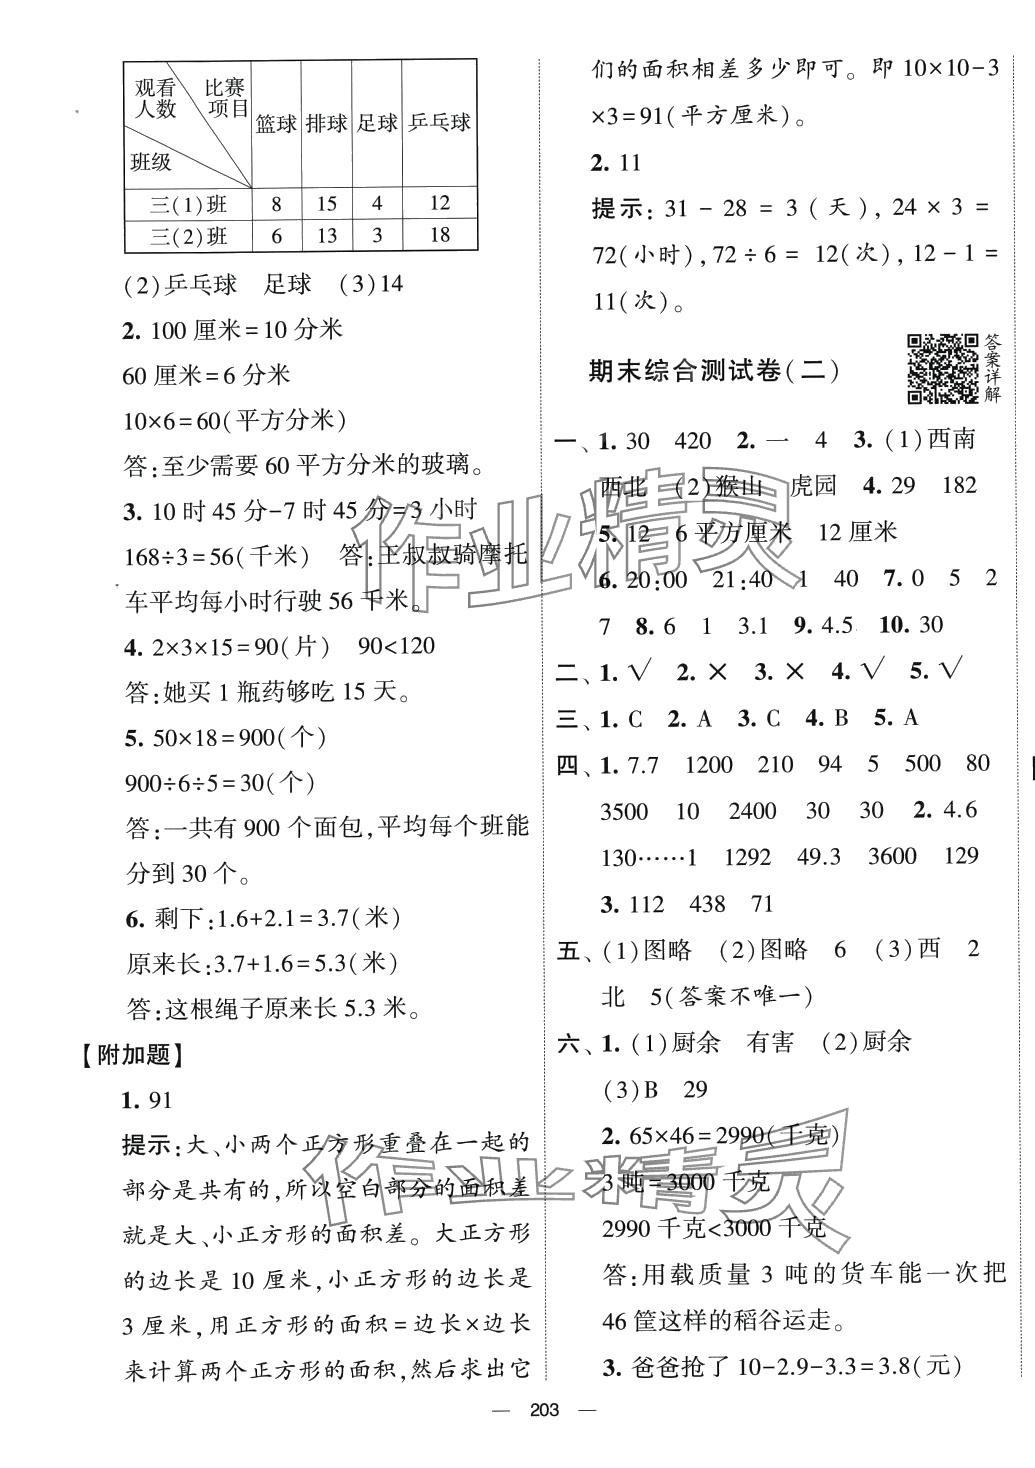 观看人数 比赛项目 班级 篮球 排球 足球 乒乓球
三(1)班 8 15 4 12
三(2)班 6 13 3 18
(2)乒乓球 足球 (3)14
2. 100 厘米=10 分米
60 厘米=6 分米
10×6=60(平方分米)
答:至少需要 60 平方分米的玻璃。
3. 10 时 45 分-7 时 45 分=3 小时
168÷3=56(千米) 答:王叔叔骑摩托
车平均每小时行驶 56 千米。
4. 2×3×15=90(片) 90<120
答:她买 1 瓶药够吃 15 天。
5. 50×18=900(个)
900÷6÷5=30(个)
答:一共有 900 个面包,平均每个班能
分到 30 个。
6. 剩下:1.6+2.1=3.7(米)
原来长:3.7+1.6=5.3(米)
答:这根绳子原来长 5.3 米。
【附加题】
1. 91
提示:大、小两个正方形重叠在一起的
部分是共有的,所以空白部分的面积差
就是大、小正方形的面积差。大正方形
的边长是 10 厘米,小正方形的边长是
3 厘米,用正方形的面积=边长×边长
来计算两个正方形的面积,然后求出它
们的面积相差多少即可。即 10×10-3
×3=91(平方厘米)。
2. 11
提示:31-28=3(天),24×3=
72(小时),72÷6=12(次),12-1=
11(次)。
期末综合测试卷(二)
答案详解
一、1. 30 420 2. 一 4 3. (1)西南
西北 (2)猴山 虎园 4. 29 182
5. 12 6 平方厘米 12 厘米
6. 20:00 21:40 1 40 7. 0 5 2
7 8. 6 1 3.1 9. 4.5 10. 30
二、1. √ 2. × 3. × 4. √ 5. √
三、1. C 2. A 3. C 4. B 5. A
四、1. 7.7 1200 210 94 5 500 80
3500 10 2400 30 30 2. 4.6
130……1 1292 49.3 3600 129
3. 112 438 71
五、(1)图略 (2)图略 6 (3)西 2
北 5(答案不唯一)
六、1. (1)厨余 有害 (2)厨余
(3)B 29
2. 65×46=2990(千克)
3 吨=3000 千克
2990 千克<3000 千克
答:用载质量 3 吨的货车能一次把
46 筐这样的稻谷运走。
3. 爸爸抢了 10-2.9-3.3=3.8(元)
— 203 —
作业精灵
作业精灵